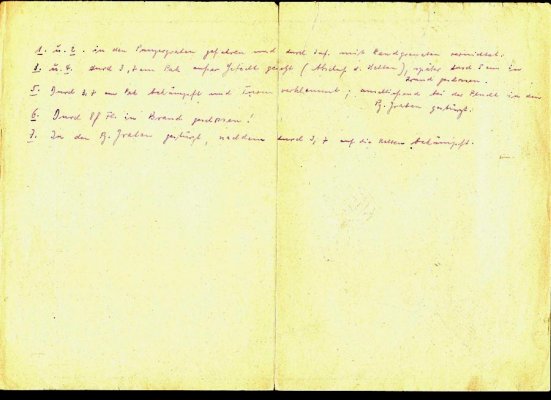 1. u. 2. in den Panzergraben gefahren und durch Inf. mit Handgranaten vernichtet.
3. u. 4. durch 3,7 cm Pak außer Gefecht gesetzt (Abschuß d. Ketten), später durch 5 cm in
Brand geschossen.
5. Durch 3,7 cm Pak bekämpft und Turm verklemmt; anschließend bei der Flucht in den
Pz. Graben gestürzt.
6. Durch in Brand geschossen!
7. In den Pz. Graben gestürzt, nachdem durch 3,7 auf die Ketten bekämpft.